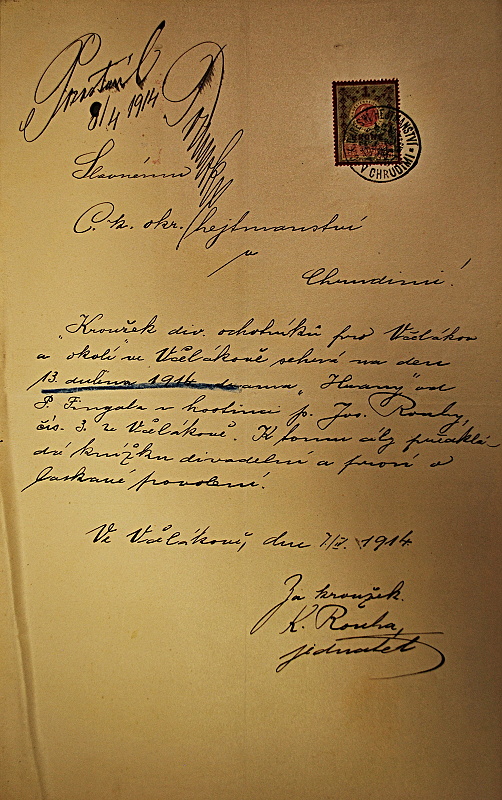 8/4 1914
Slavnému
C. k. okr. hejtmanství
v
Chrudimi!
V CHRUDIMI
„Kroužek div. ochotníků pro Včelákov
a okolí" ve Včelákově sehrá na den
13. dubna 1914 drama „Havany" od
P. Fingala v hostinci p. Jos. Rouhy,
čís. 3 ve Včelákově. K tomu cíly předklá-
dá knížku divadelní a prosí o
laskavé povolení.
Ve Včelákově, dne 7/IV. 1914.
Za kroužek.
K. Rouha,
jednatel